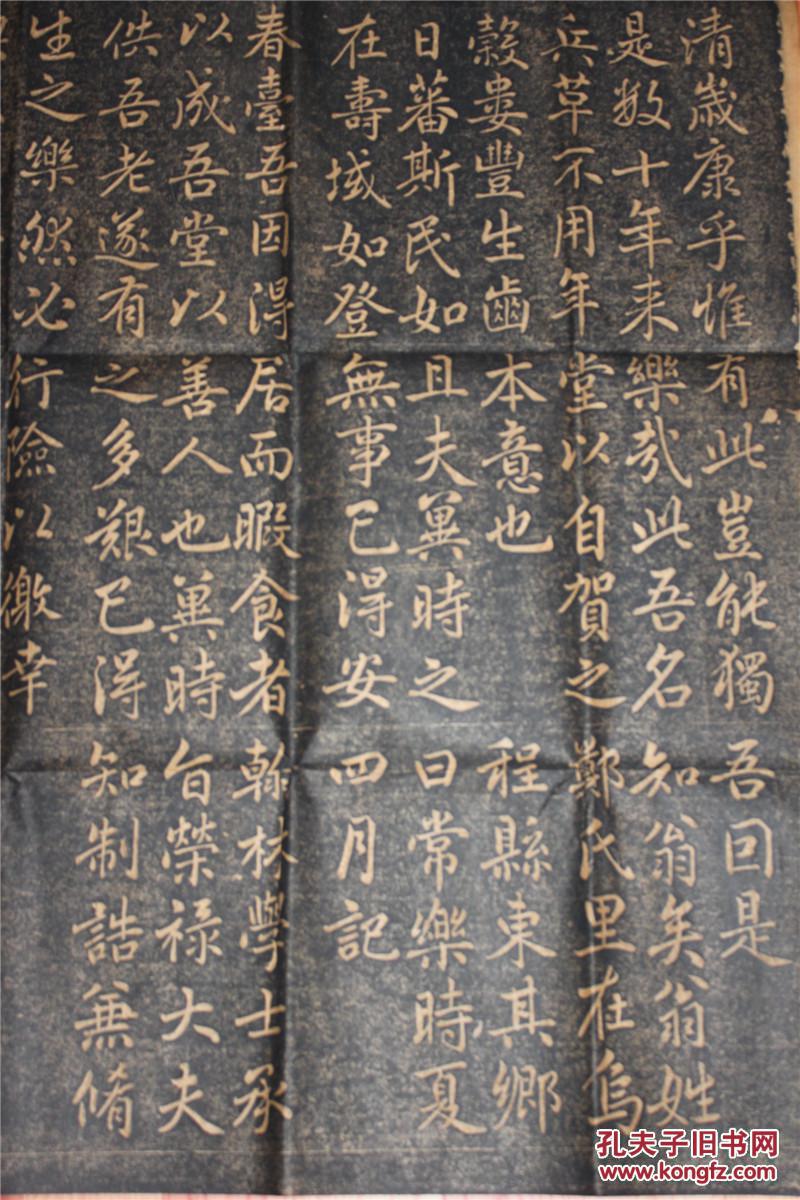 清歲康乎惟
是数十年来
兵草不用年
穀婁豐生齒
日蕃斯民如
在壽域如登
春臺吾因得
以成吾堂以
供吾老遂有
生之樂然必
有此豈能獨
樂哉此吾名
堂以自賀之
本意也
且夫異時之
無事已得安
居而暇食者
善人也異時
之多艱已得
行險以徼幸
吾回是
知翁矣翁姓
鄭氏里在烏
程縣東其鄉
曰常樂時夏
四月記
翰林學士承
旨榮祿大夫
知制誥兼脩
孔夫子旧书网
www.kongfz.com